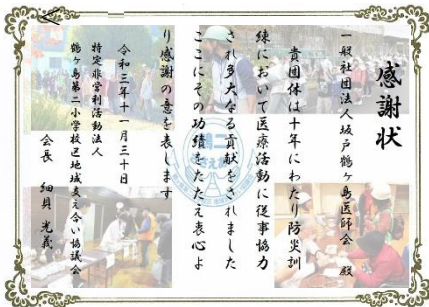 感謝状
一般社団法人坂戸鶴ヶ島医師会 殿
貴団体は十年にわたり防災訓
練において医療活動に従事協力
され多大なる貢献をされました
ここにその功績をたたえ衷心よ
り感謝の意を表します
令和三年十一月三十日
特定非営利活動法人
鶴ヶ島第二小学校区地域支え合い協議会
会長 細貝光義